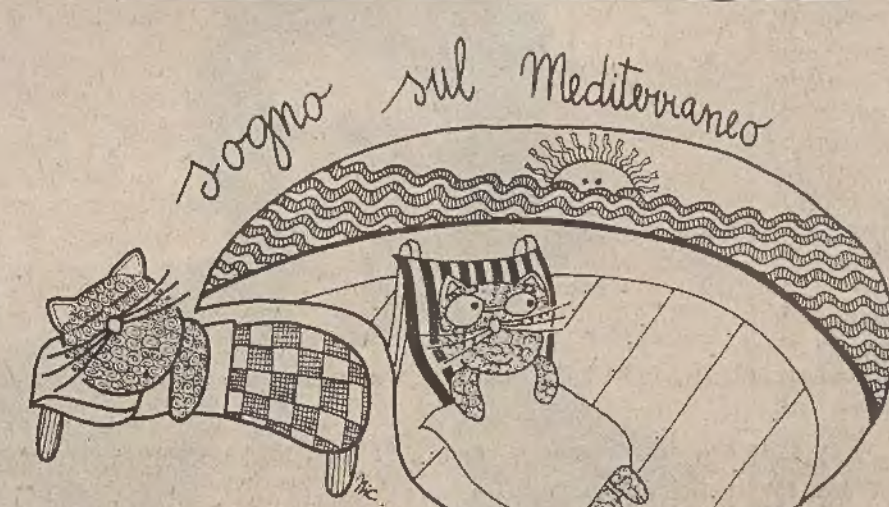 sogno sul Mediterraneo
Nic.